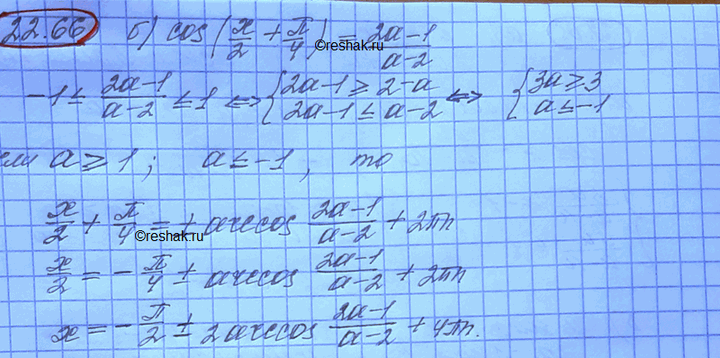 22.66 б) cos(x/2 + π/4) = (2a-1)/(a-2)
©reshak.ru
-1 ≤ (2a-1)/(a-2) ≤ 1 ⇔ { 2a-1 ≥ 2-a ; 2a-1 ≤ a-2 ⇔ { 3a ≥ 3 ; a ≤ -1
сли a ≥ 1; a ≤ -1, то
x/2 + π/4 = ± arccos (2a-1)/(a-2) + 2πn
©reshak.ru
x/2 = - π/4 ± arccos (2a-1)/(a-2) + 2πn
x = - π/2 ± 2 arccos (2a-1)/(a-2) + 4πn.